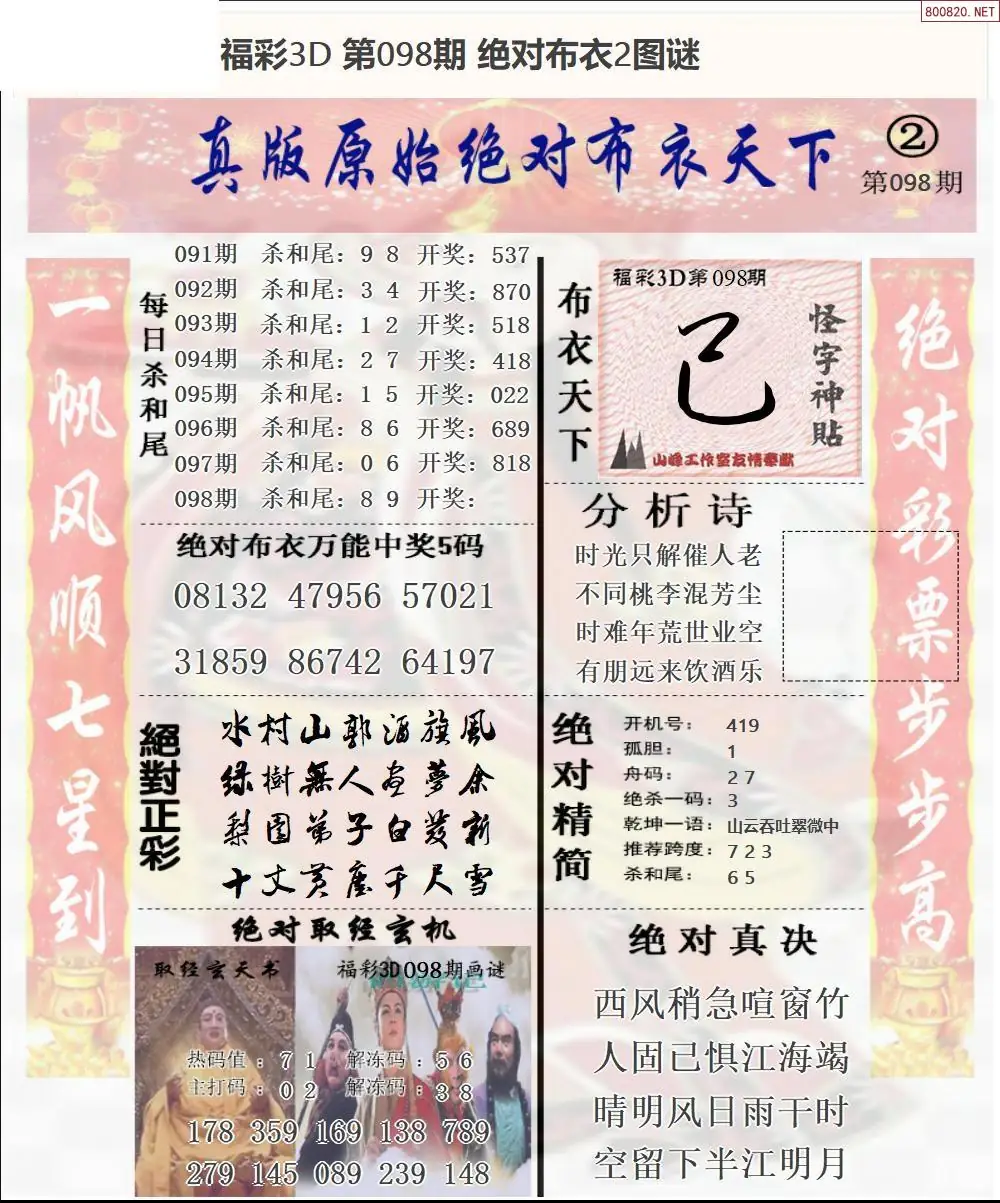 800820.NET
福彩3D 第098期 绝对布衣2图谜
真版原始绝对布衣天下
②
第098期
一帆风顺七星到
每日杀和尾
091期 杀和尾：9 8 开奖：537
092期 杀和尾：3 4 开奖：870
093期 杀和尾：1 2 开奖：518
094期 杀和尾：2 7 开奖：418
095期 杀和尾：1 5 开奖：022
096期 杀和尾：8 6 开奖：689
097期 杀和尾：0 6 开奖：818
098期 杀和尾：8 9 开奖：
绝对布衣万能中奖5码
08132 47956 57021
31859 86742 64197
絕對正彩
水村山郭酒旗風
绿樹無人昼夢余
梨園弟子白发新
十丈黄塵千尺雪
绝对取经玄机
取经玄天书
福彩3D098期画谜
热码值：7 1 解冻码：5 6
主打码：0 2 解冻码：3 8
178 359 169 138 789
279 145 089 239 148
布衣天下
福彩3D第098期
己
怪字神貼
山峰工作室友情奉献
分析诗
时光只解催人老
不同桃李混芳尘
时难年荒世业空
有朋远来饮酒乐
绝对精简
开机号：419
孤胆：1
舟码：2 7
绝杀一码：3
乾坤一语：山云吞吐翠微中
推荐跨度：7 2 3
杀和尾：6 5
绝对真决
西风稍急喧窗竹
人固已惧江海竭
晴明风日雨干时
空留下半江明月
绝对彩票步步高